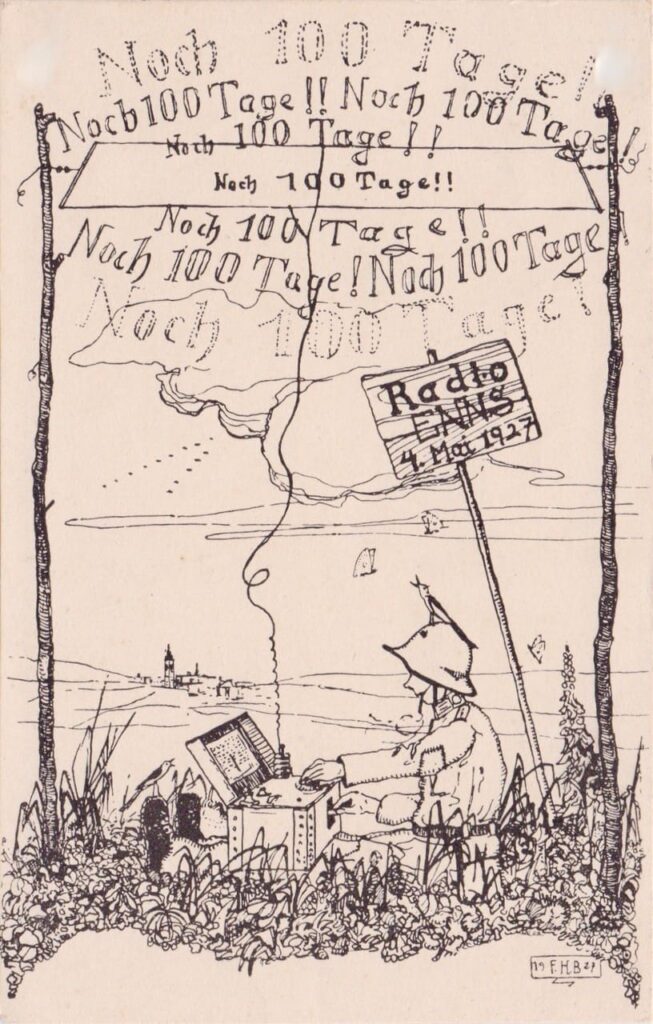 Noch 100 Tage!
Noch 100 Tage!! Noch 100 Tage!
Noch 100 Tage!!
Noch 100 Tage!!
Noch 100 Tage!!
Noch 100 Tage! Noch 100 Tage!
Noch 100 Tage!
Radio
ENNS
4. Mai 1927
19 F.H.B 27